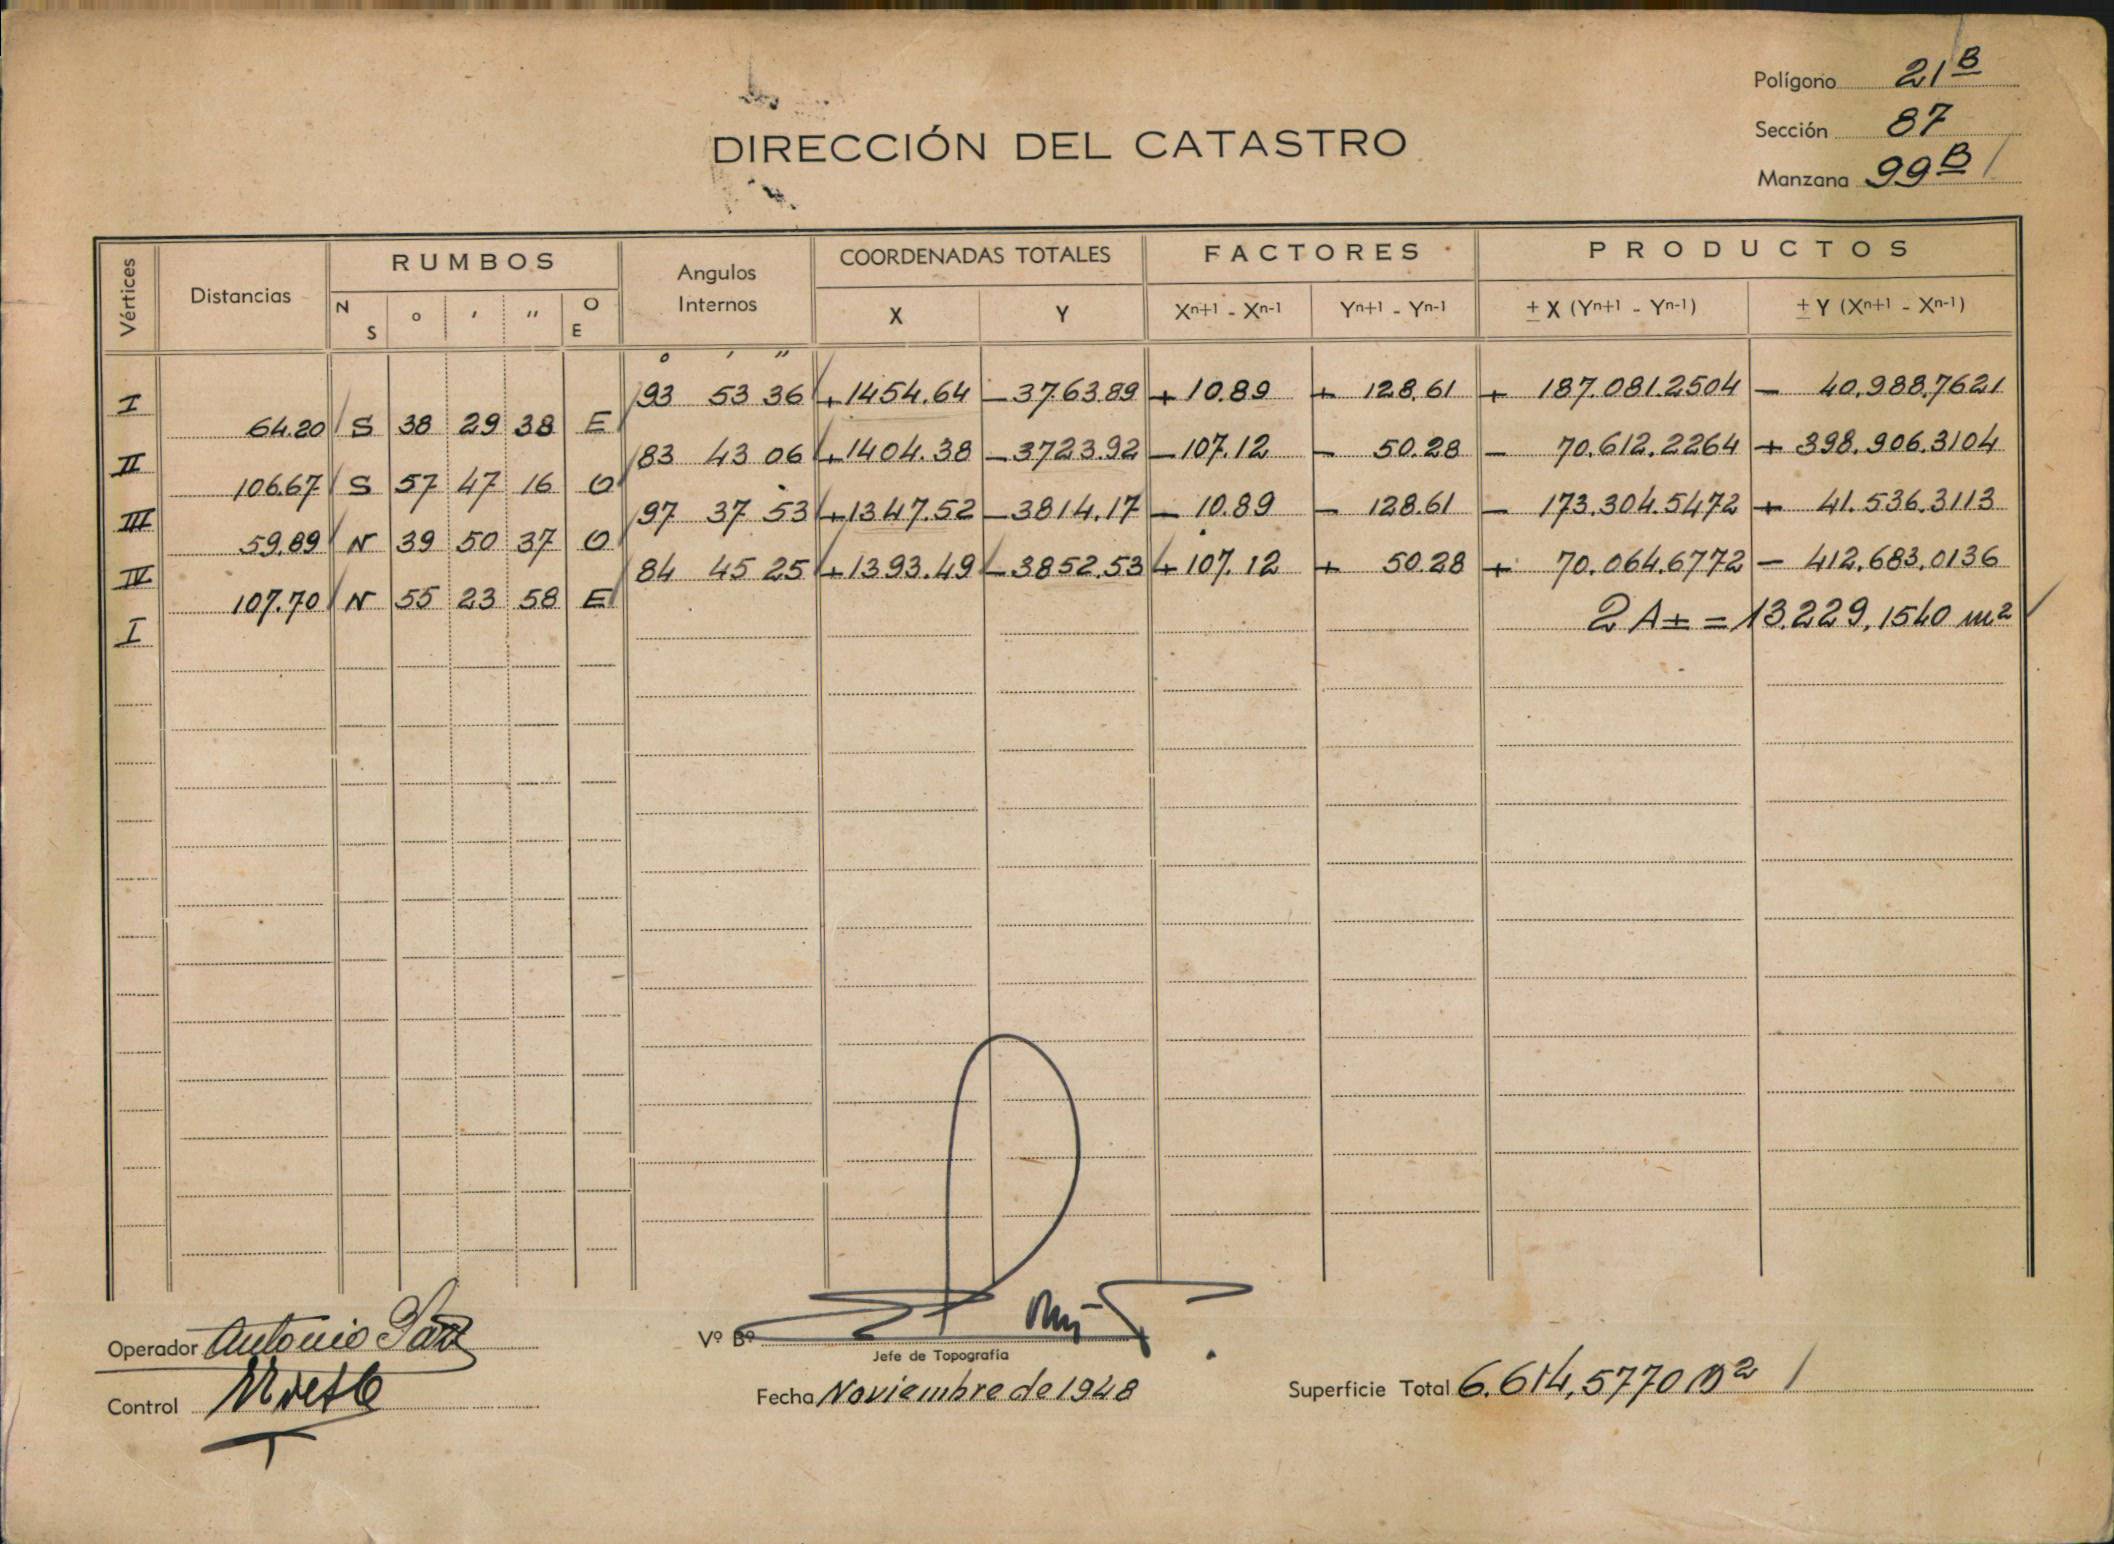 Polígono 21 B
Sección 87
DIRECCIÓN DEL CATASTRO
Manzana 99 B
Vértices Distancias RUMBOS Angulos Internos COORDENADAS TOTALES FACTORES PRODUCTOS
N S ° ' " O E X Y Xn+1 - Xn-1 Yn+1 - Yn-1 ± X (Yn+1 - Yn-1) ± Y (Xn+1 - Xn-1)
° ' "
I 93 53 36 +1454.64 -3763.89 + 10.89 + 128.61 + 187.081.2504 - 40.988.7621
64.20 S 38 29 38 E
II 83 43 06 +1404.38 -3723.92 -107.12 - 50.28 - 70.612.2264 + 398.906.3104
106.67 S 57 47 16 O
III 97 37 53 +1347.52 -3814.17 - 10.89 - 128.61 - 173.304.5472 + 41.536.3113
59.89 N 39 50 37 O
IV 84 45 25 +1393.49 -3852.53 +107.12 + 50.28 + 70.064.6772 - 412.683.0136
107.70 N 55 23 58 E
I 2 A ± = 13.229,1540 m2
Operador Antonio
Vº Bº
Jefe de Topografía
Control
Fecha Noviembre de 1948
Superficie Total 6.614,5770 m2